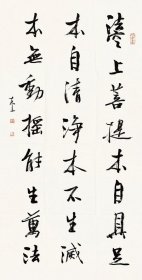 上菩提本自具足
本自清淨本不生滅
本無動搖能生萬法